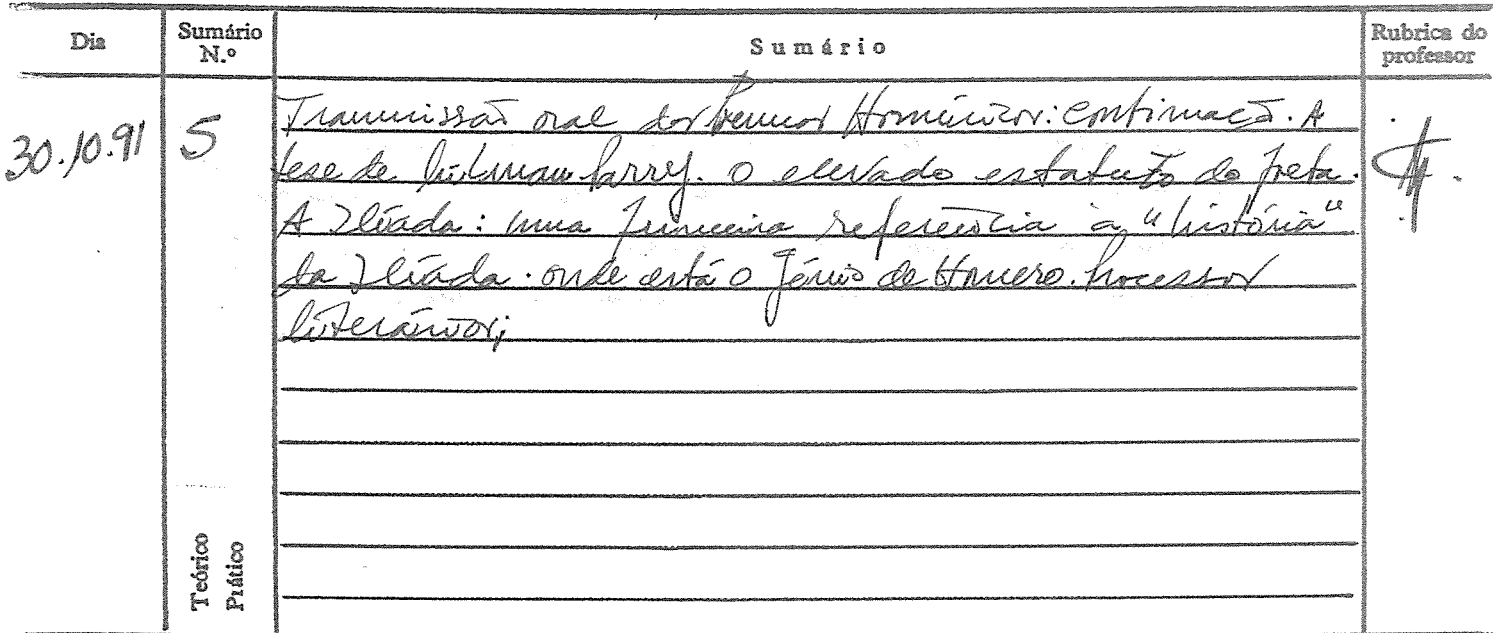 Dia
Sumário N.º
Sumário
Rubrica do professor
30.10.91
5
Transmissão oral dos Poemas Homéricos: continuação. A
tese de Milman Parry. O elevado estatuto do poeta.
A Ilíada: uma primeira referência à "história"
da Ilíada. onde está o génio de Homero. Processos
literários;
Teórico
Prático